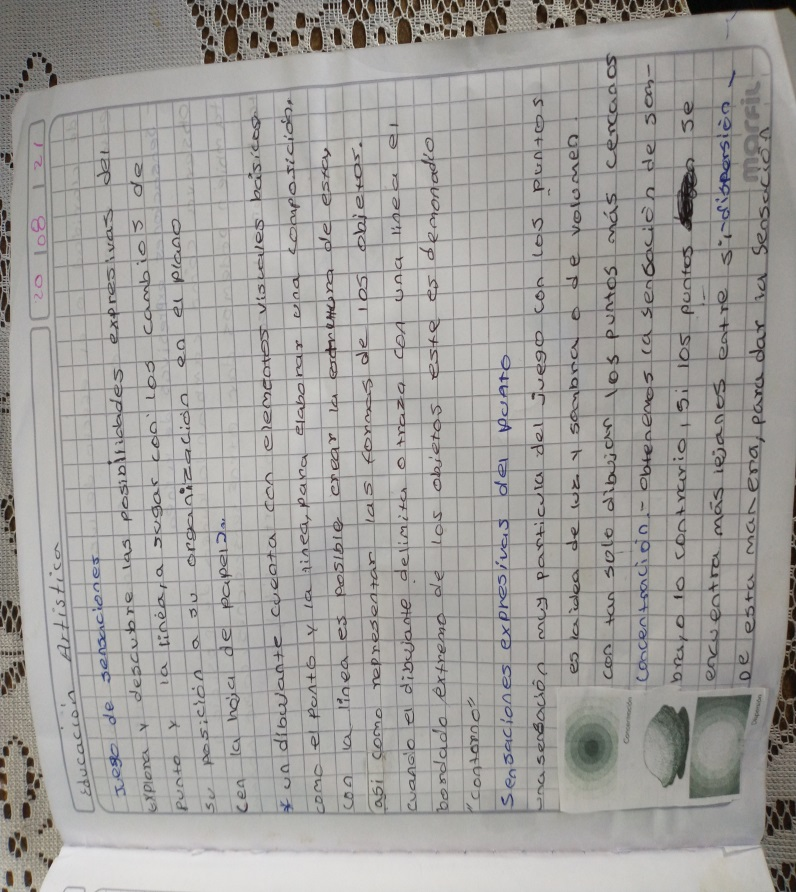 20 | 08 | 21
Educación Artística
Juego de sensaciones
explora y descubre las posibilidades expresivas del
punto y la linéa, a sugar con los cambios de
su posición a su organización en el plano
(en la hoja de papel).
* un dibujante cuenta con elementos visuales básicos
como el punto y la linea, para elaborar una composición,
con la linea es posible crear la de estos
asi como representar las formas de los objetos.
cuando el dibujante delimita o traza con una linea el
bordado extremo de los objetos este es demonado
"contorno"
Sensaciones expresivas del punto
una sensación muy particula del juego con los puntos
es la idea de luz y sombra o de volumen.
con tan solo dibujan los puntos más cercanos
concentración.- obtenemos la sensación de som-
bra, o lo contrario, si los puntos se
encuentra más lejanos entre si, dispersión
De esta manera, para dar la sensación
Concentración
Dispersión
MARFIL